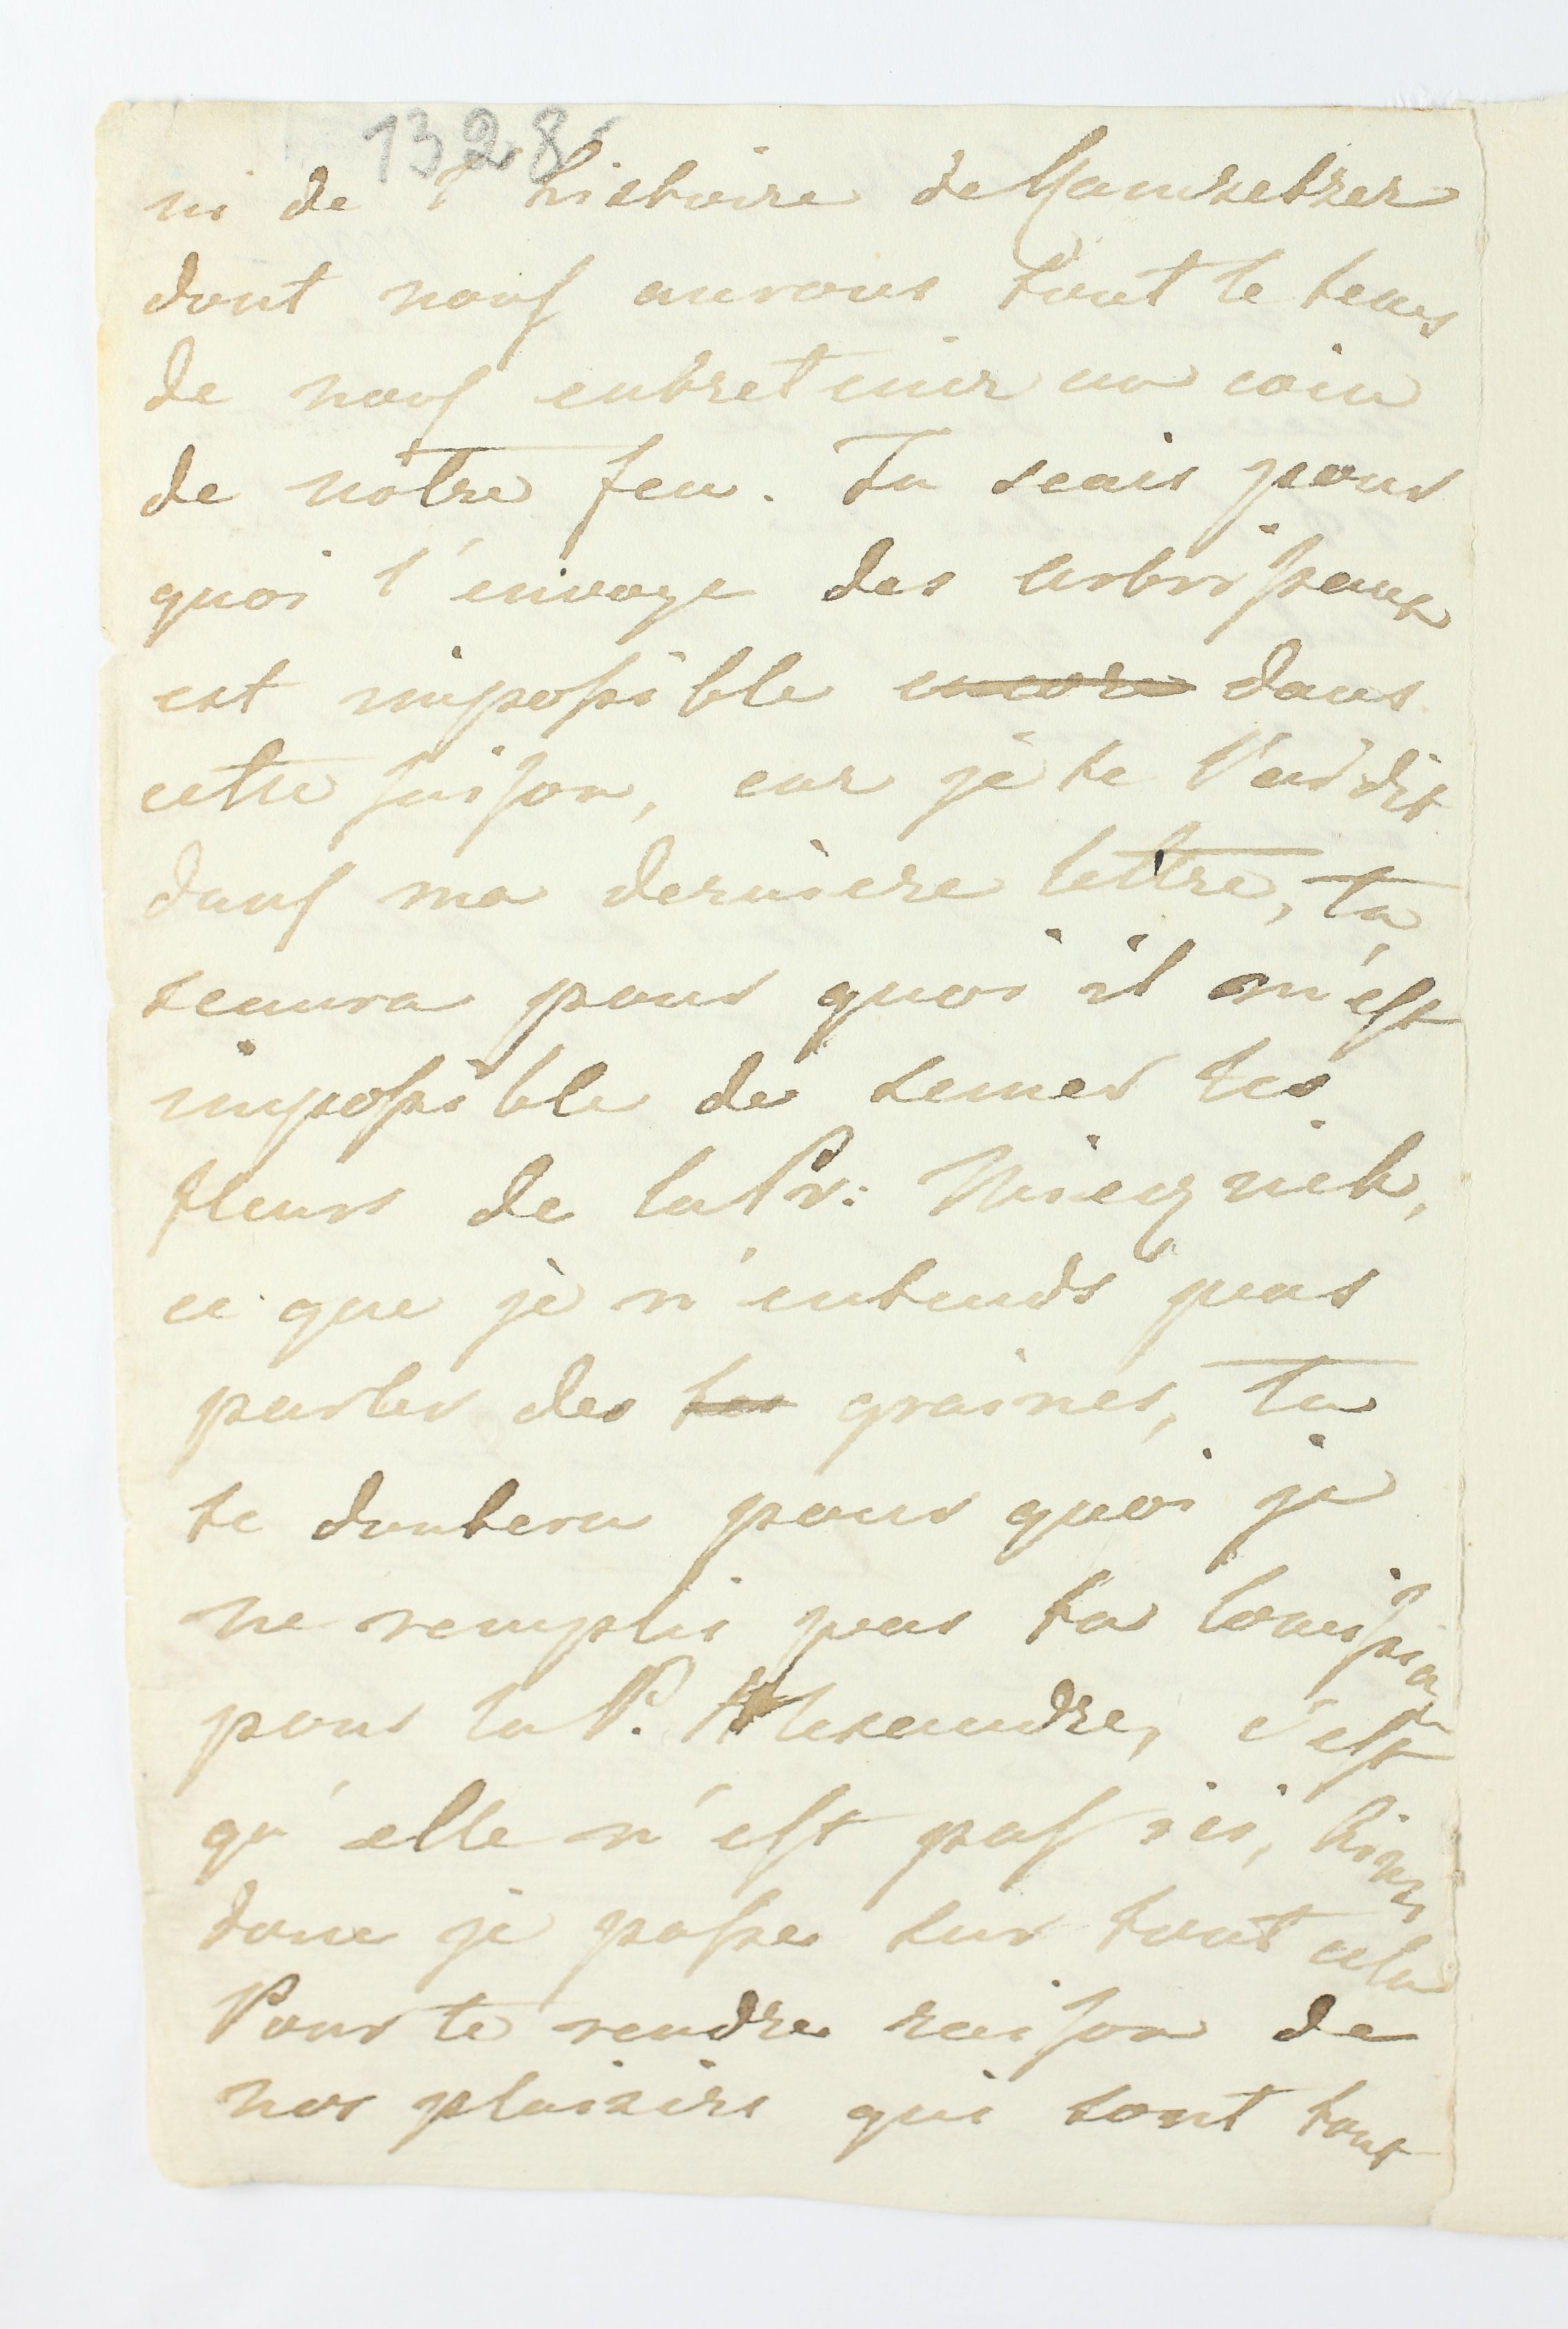 1328
ni de l'histoire de Kamsetzer
dont nous aurons tout le tems
de nous entretenir au coin
de nôtre feu. Tu scais pour
quoi l'envoye des arbrisseaux
est impossible encore dans
cette saison, car je te l'ai dit
dans ma derniere lettre, tu
scaura pour quoi il m'est
impossible de semer les
fleurs de la Pr:
ce que je n'entends pas
parler des tes graines, tu
te doutera pour quoi je
ne remplis pas ta
pour la P. Alexandre, c'est
qu'elle n'est pas ici,
donc je passe sur tout cela
Pour te rendre raison de
nos plaisirs qui sont tout